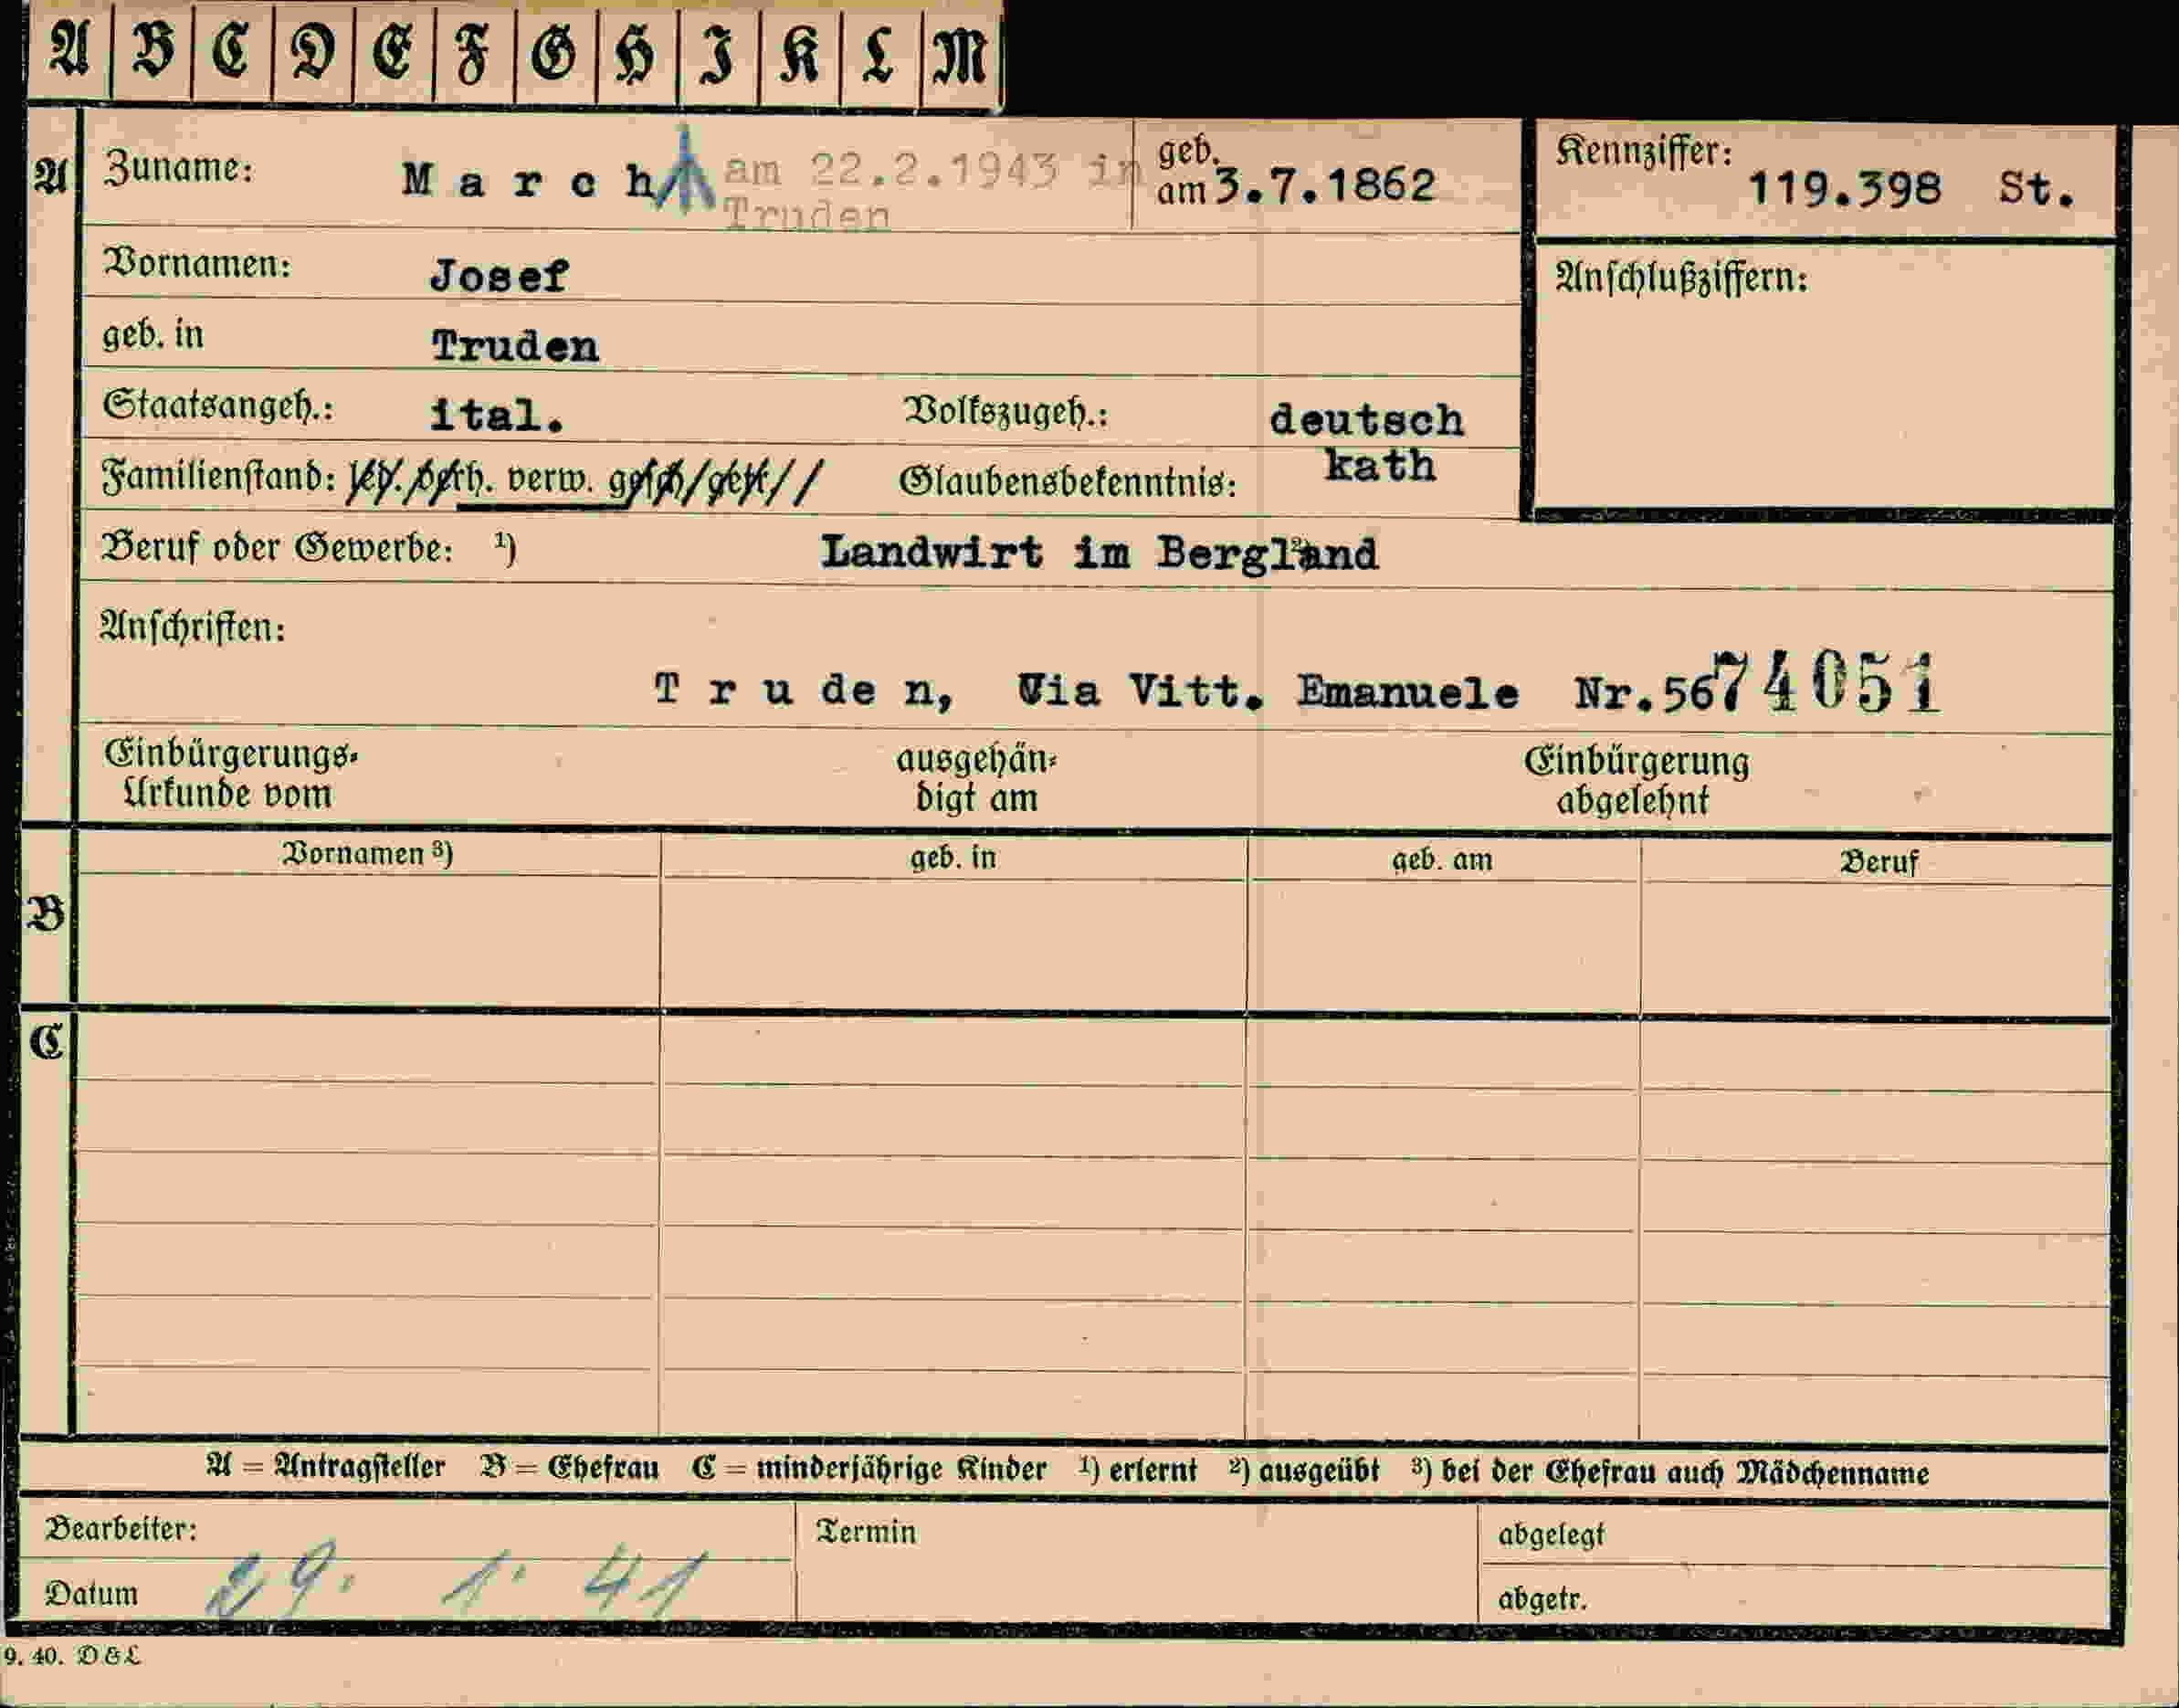 A B C D E F G H I K L M
A Zuname: M a r c h am 22.2.1943 in geb. am 3.7.1862 Kennziffer: 119.398 St.
Truden
Vornamen: Josef Anschlußziffern:
geb. in Truden
Staatsangeh.: ital. Volkszugeh.: deutsch
Familienstand: led. verh. verw. gesch/getr// Glaubensbekenntnis: kath
Beruf oder Gewerbe: 1) Landwirt im Bergland 2)
Anschriften:
T r u de n, Via Vitt. Emanuele Nr.56 74051
Einbürgerungs- ausgehän- Einbürgerung
Urkunde vom digt am abgelehnt
Vornamen 3) geb. in geb. am Beruf
B
C
A = Antragsteller B = Ehefrau C = minderjährige Kinder 1) erlernt 2) ausgeübt 3) bei der Ehefrau auch Mädchenname
Bearbeiter: Termin abgelegt
Datum 29. 1. 41 abgetr.
9. 40. D & L